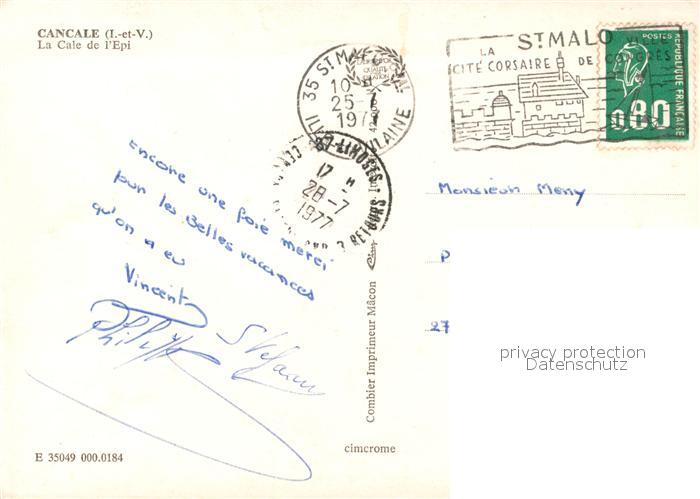 CANCALE (I.-et-V.)
La Cale de l'Epi
35 ST MALO
10 H
25-7
1977
ILLE ET VILAINE
LA
ST MALO VILLE
CITÉ CORSAIRE DE CONGRÈS
POSTES
RÉPUBLIQUE FRANÇAISE
0,80
87 LIMOGES
17 H
28-7
1977
RETOURS
Encore une fois merci
pour les Belles vacances
qu'on a eu
Vincent
Philippe
Stéfan
Monsieur Meny
P
27
privacy protection
Datenschutz
Combier Imprimeur Mâcon
cimcrome
E 35049 000.0184